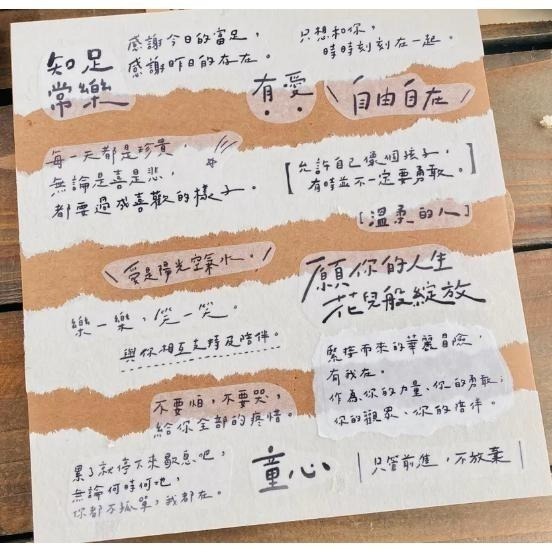 知足
常樂
感謝今日的富足，
感謝昨日的存在。
只想和你，
時時刻刻在一起。
有愛
\ 自由自在 /
每一天都是珍貴，
無論是喜是悲，
都要過成喜歡的樣子。
[ 允許自己像個孩子，
有時並不一定要勇敢。]
[溫柔的人]
\ 愛是陽光空氣水。/
願你的人生
花兒般綻放
樂一樂，笑一笑。
與你相互支持及陪伴。
緊接而來的華麗冒險，
有我在。
作為，你的力量、你的勇敢；
你的觀眾、你的陪伴。
不要怕，不要哭，
給你全部的疼惜。
累了就停下來歇息吧，
無論何時何地，
你都不孤單，我都在。
童心
|只管前進，不放棄|